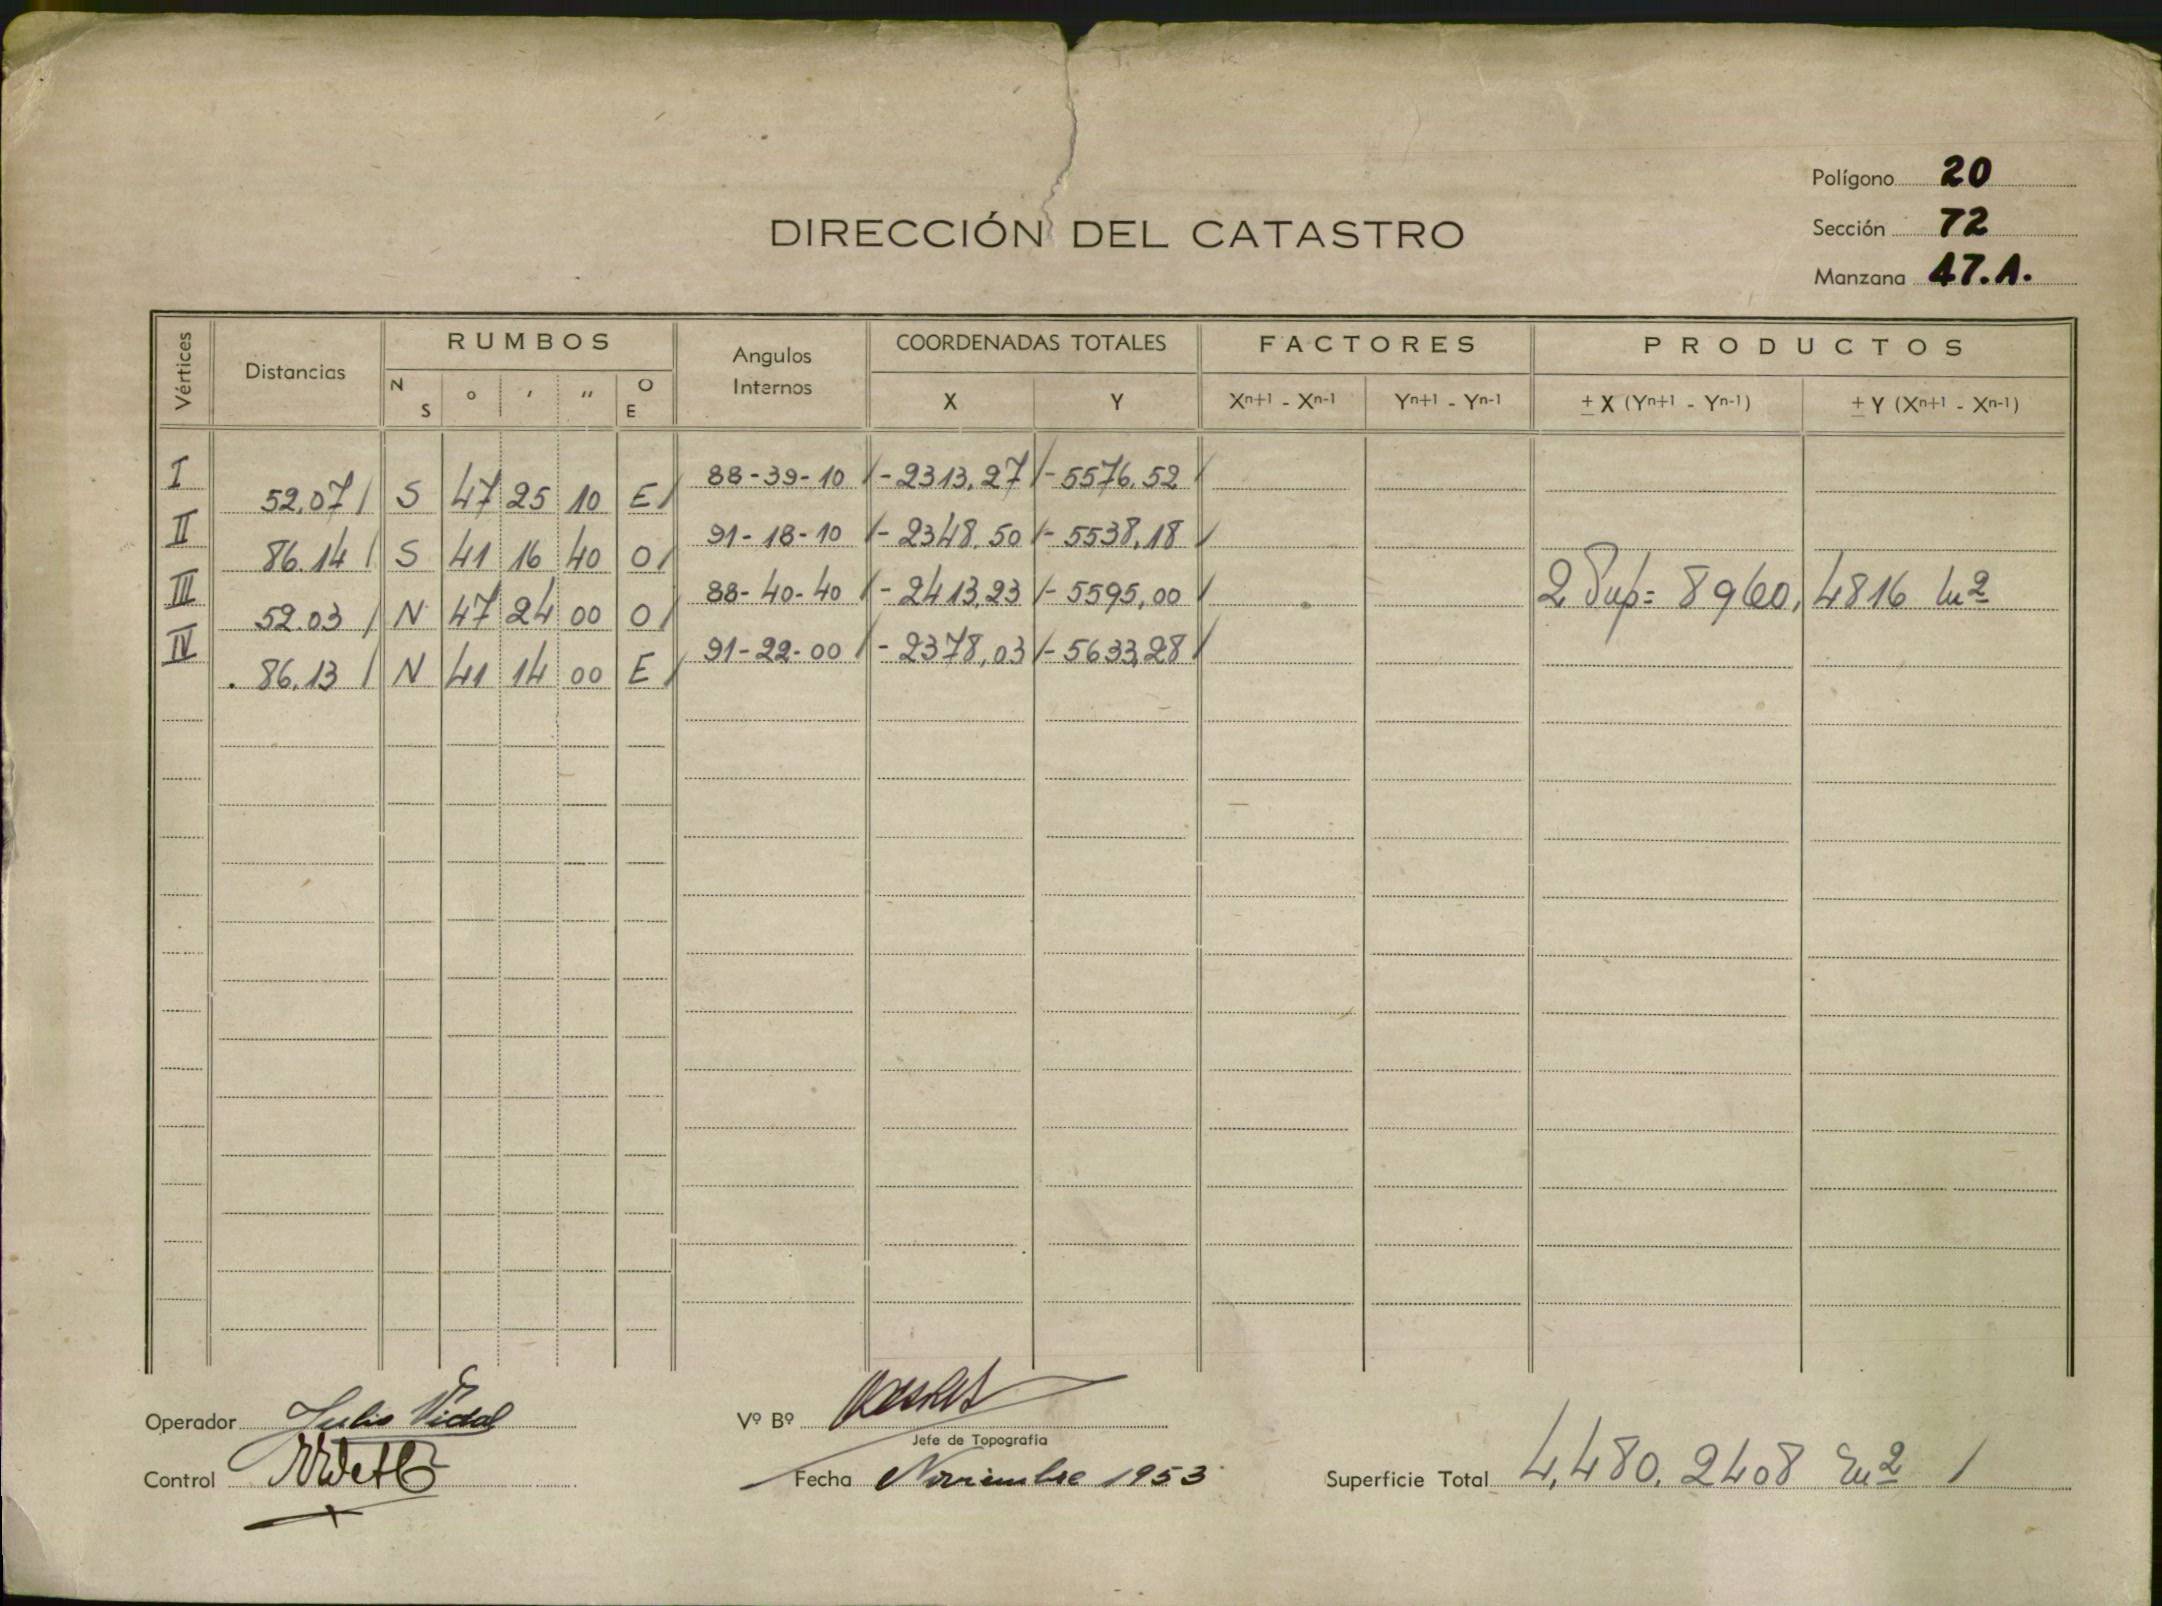 Polígono 20
DIRECCIÓN DEL CATASTRO
Sección 72
Manzana 47.A.
Vértices Distancias RUMBOS Angulos Internos COORDENADAS TOTALES FACTORES PRODUCTOS
N S ° ' " O E X Y Xn+1 - Xn-1 Yn+1 - Yn-1 ± X (Yn+1 - Yn-1) ± Y (Xn+1 - Xn-1)
I 88-39-10 / -2313,27 / -5576,52 /
52,07 / S 47 25 10 E /
II 91-18-10 / -2348,50 / -5538,18 /
86.14 / S 41 16 40 O /
III 88-40-40 / -2413,23 / -5595,00 / 2 Sup = 8960,4816 m2
52.03 / N 47 24 00 O /
IV 91-22-00 / -2378,03 / -5633,28 /
86,13 / N 41 14 00 E /
Operador Julio Vidal
Vº Bº
Jefe de Topografía
Control
Fecha Noviembre 1953
Superficie Total 4,480.2408 m2 /